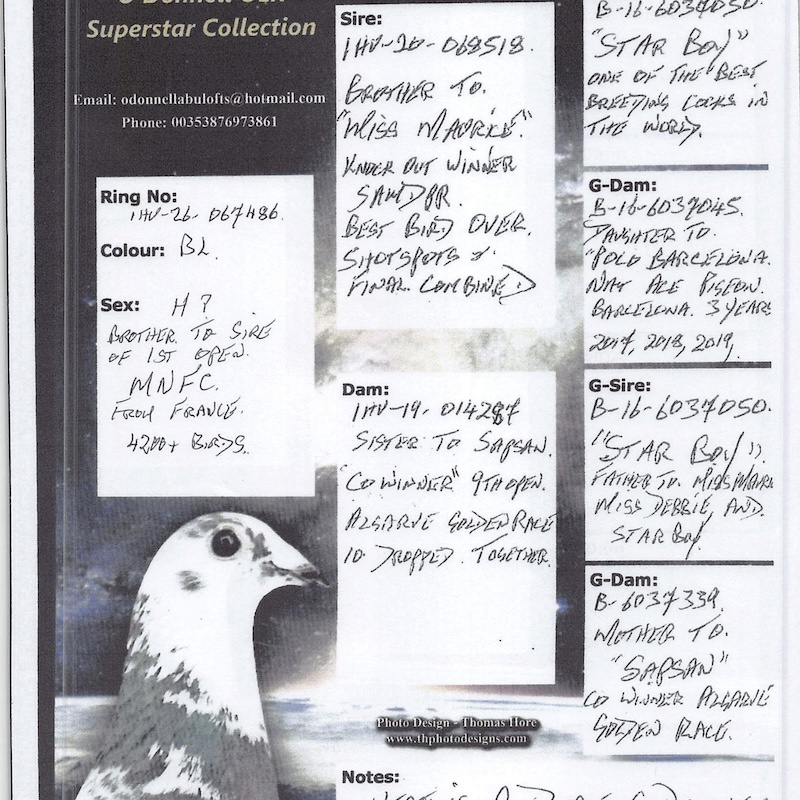 Superstar Collection
Email: odonnellabulofts@hotmail.com
Phone: 00353876973861
Ring No:
IHU-26- 067486.
Colour: BL.
Sex: H ?
BROTHER TO SIRE
OF 1ST OPEN.
MNFC.
FROM FRANCE.
4200+ BIRDS.
Sire:
IHU-20-068518.
BROTHER TO.
"MISS MAURKE".
KNOCK OUT WINNER
SAMDPR.
BEST BIRD OVER.
SHOTSPOTS &
FINAL COMBINED
Dam:
IHU-19- 014287
SISTER TO SAPSAN.
"CO WINNER" 9TH OPEN.
ALGARVE GOLDEN RACE
10 DROPPED TOGETHER.
Photo Design - Thomas Hore
www.thphotodesigns.com
Notes:
B-16-6037050.
"STAR BOY"
ONE OF THE BEST
BREEDING COCKS IN
THE WORLD.
G-Dam:
B-16-6037045.
DAUGHTER TO.
"POLO BARCELONA.
NAT ACE PIGEON.
BARCELONA. 3 YEARS
2017, 2018, 2019,
G-Sire:
B-16-6037050.
"STAR BOY"
FATHER TO. MISS
MISS DEBBIE, AND.
STAR BOY
G-Dam:
B-6037339.
MOTHER TO.
"SAPSAN"
CO WINNER ALGARVE
GOLDEN RACE.